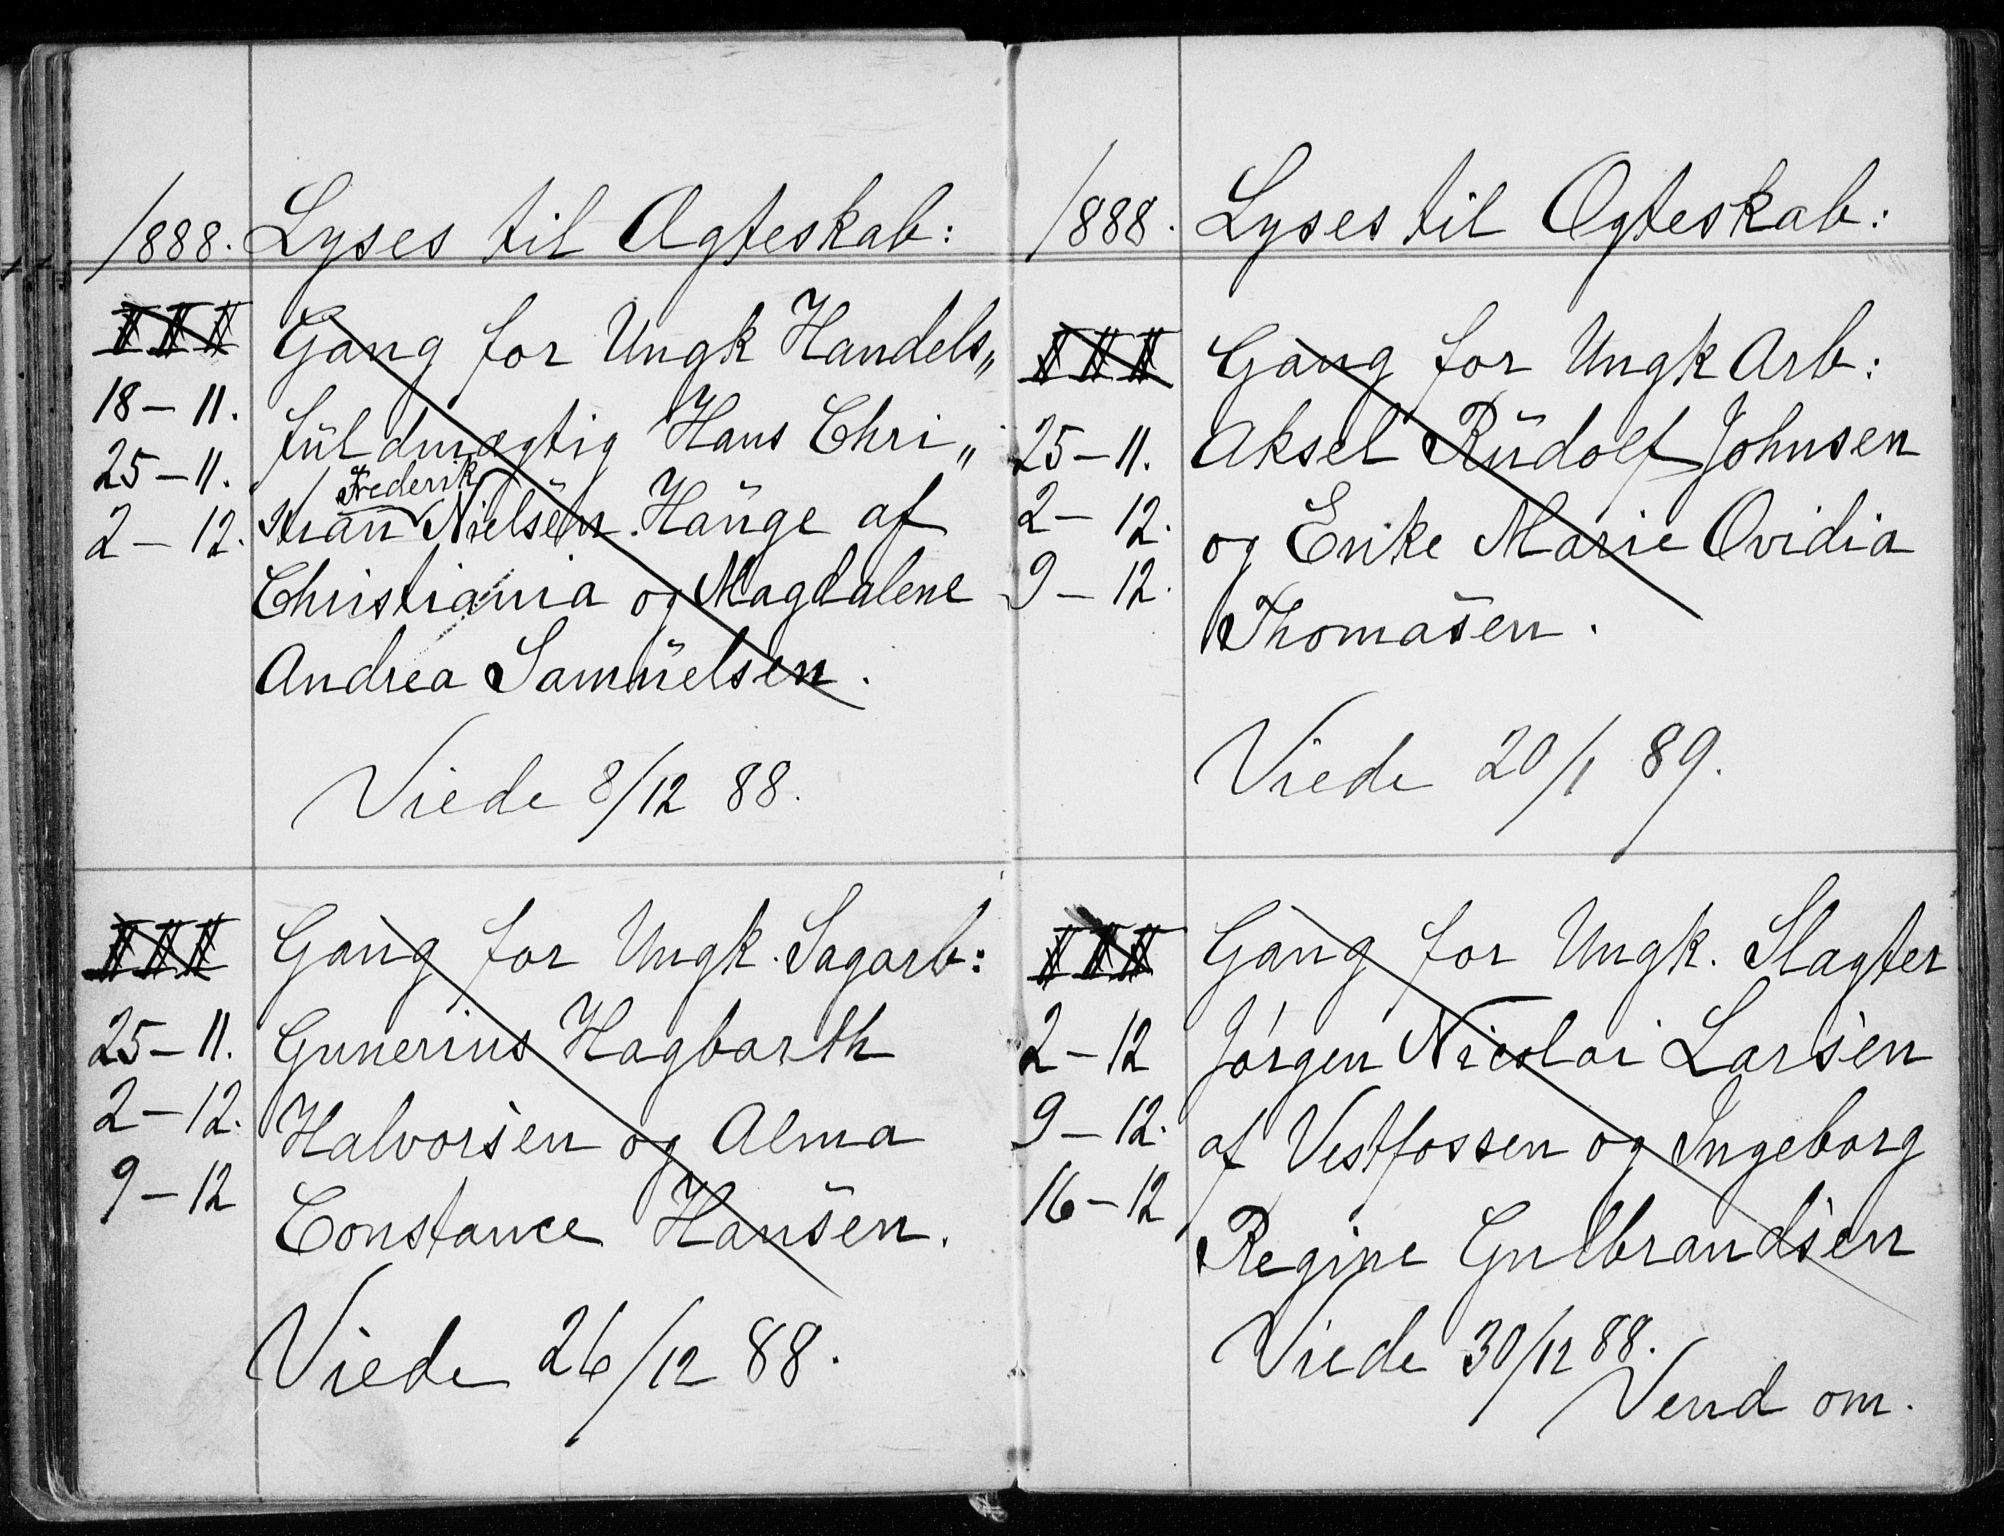 1888. Lyses til Ægteskab:
III Gang for Ungk Handels„
18-11. fuldmægtig Hans Chri„
25-11. Frederik
2-12. stian Nielsen Hauge af
Christiania og Magdalene
Andrea Samuelsen.
Viede 8/12 88.
III Gang for Ungk. Sagarb:
25-11. Gunerius Hagbarth
2-12. Halvorsen og Alma
9-12 Constance Hansen.
Viede 26/12 88.
1888. Lyses til Ægteskab:
III Gang for Ungk Arb:
25-11. Aksel Rudolf Johnsen
2-12. og Enke Marie Ovidia
9-12. Thomasen.
Viede 20/1 89.
III Gang for Ungk. Slagter
2-12 Jørgen Nicolai Larsen
9-12. af Vestfossen og Ingeborg
16-12 Regine Gulbrandsen
Viede 30/12 88.
Vend om.